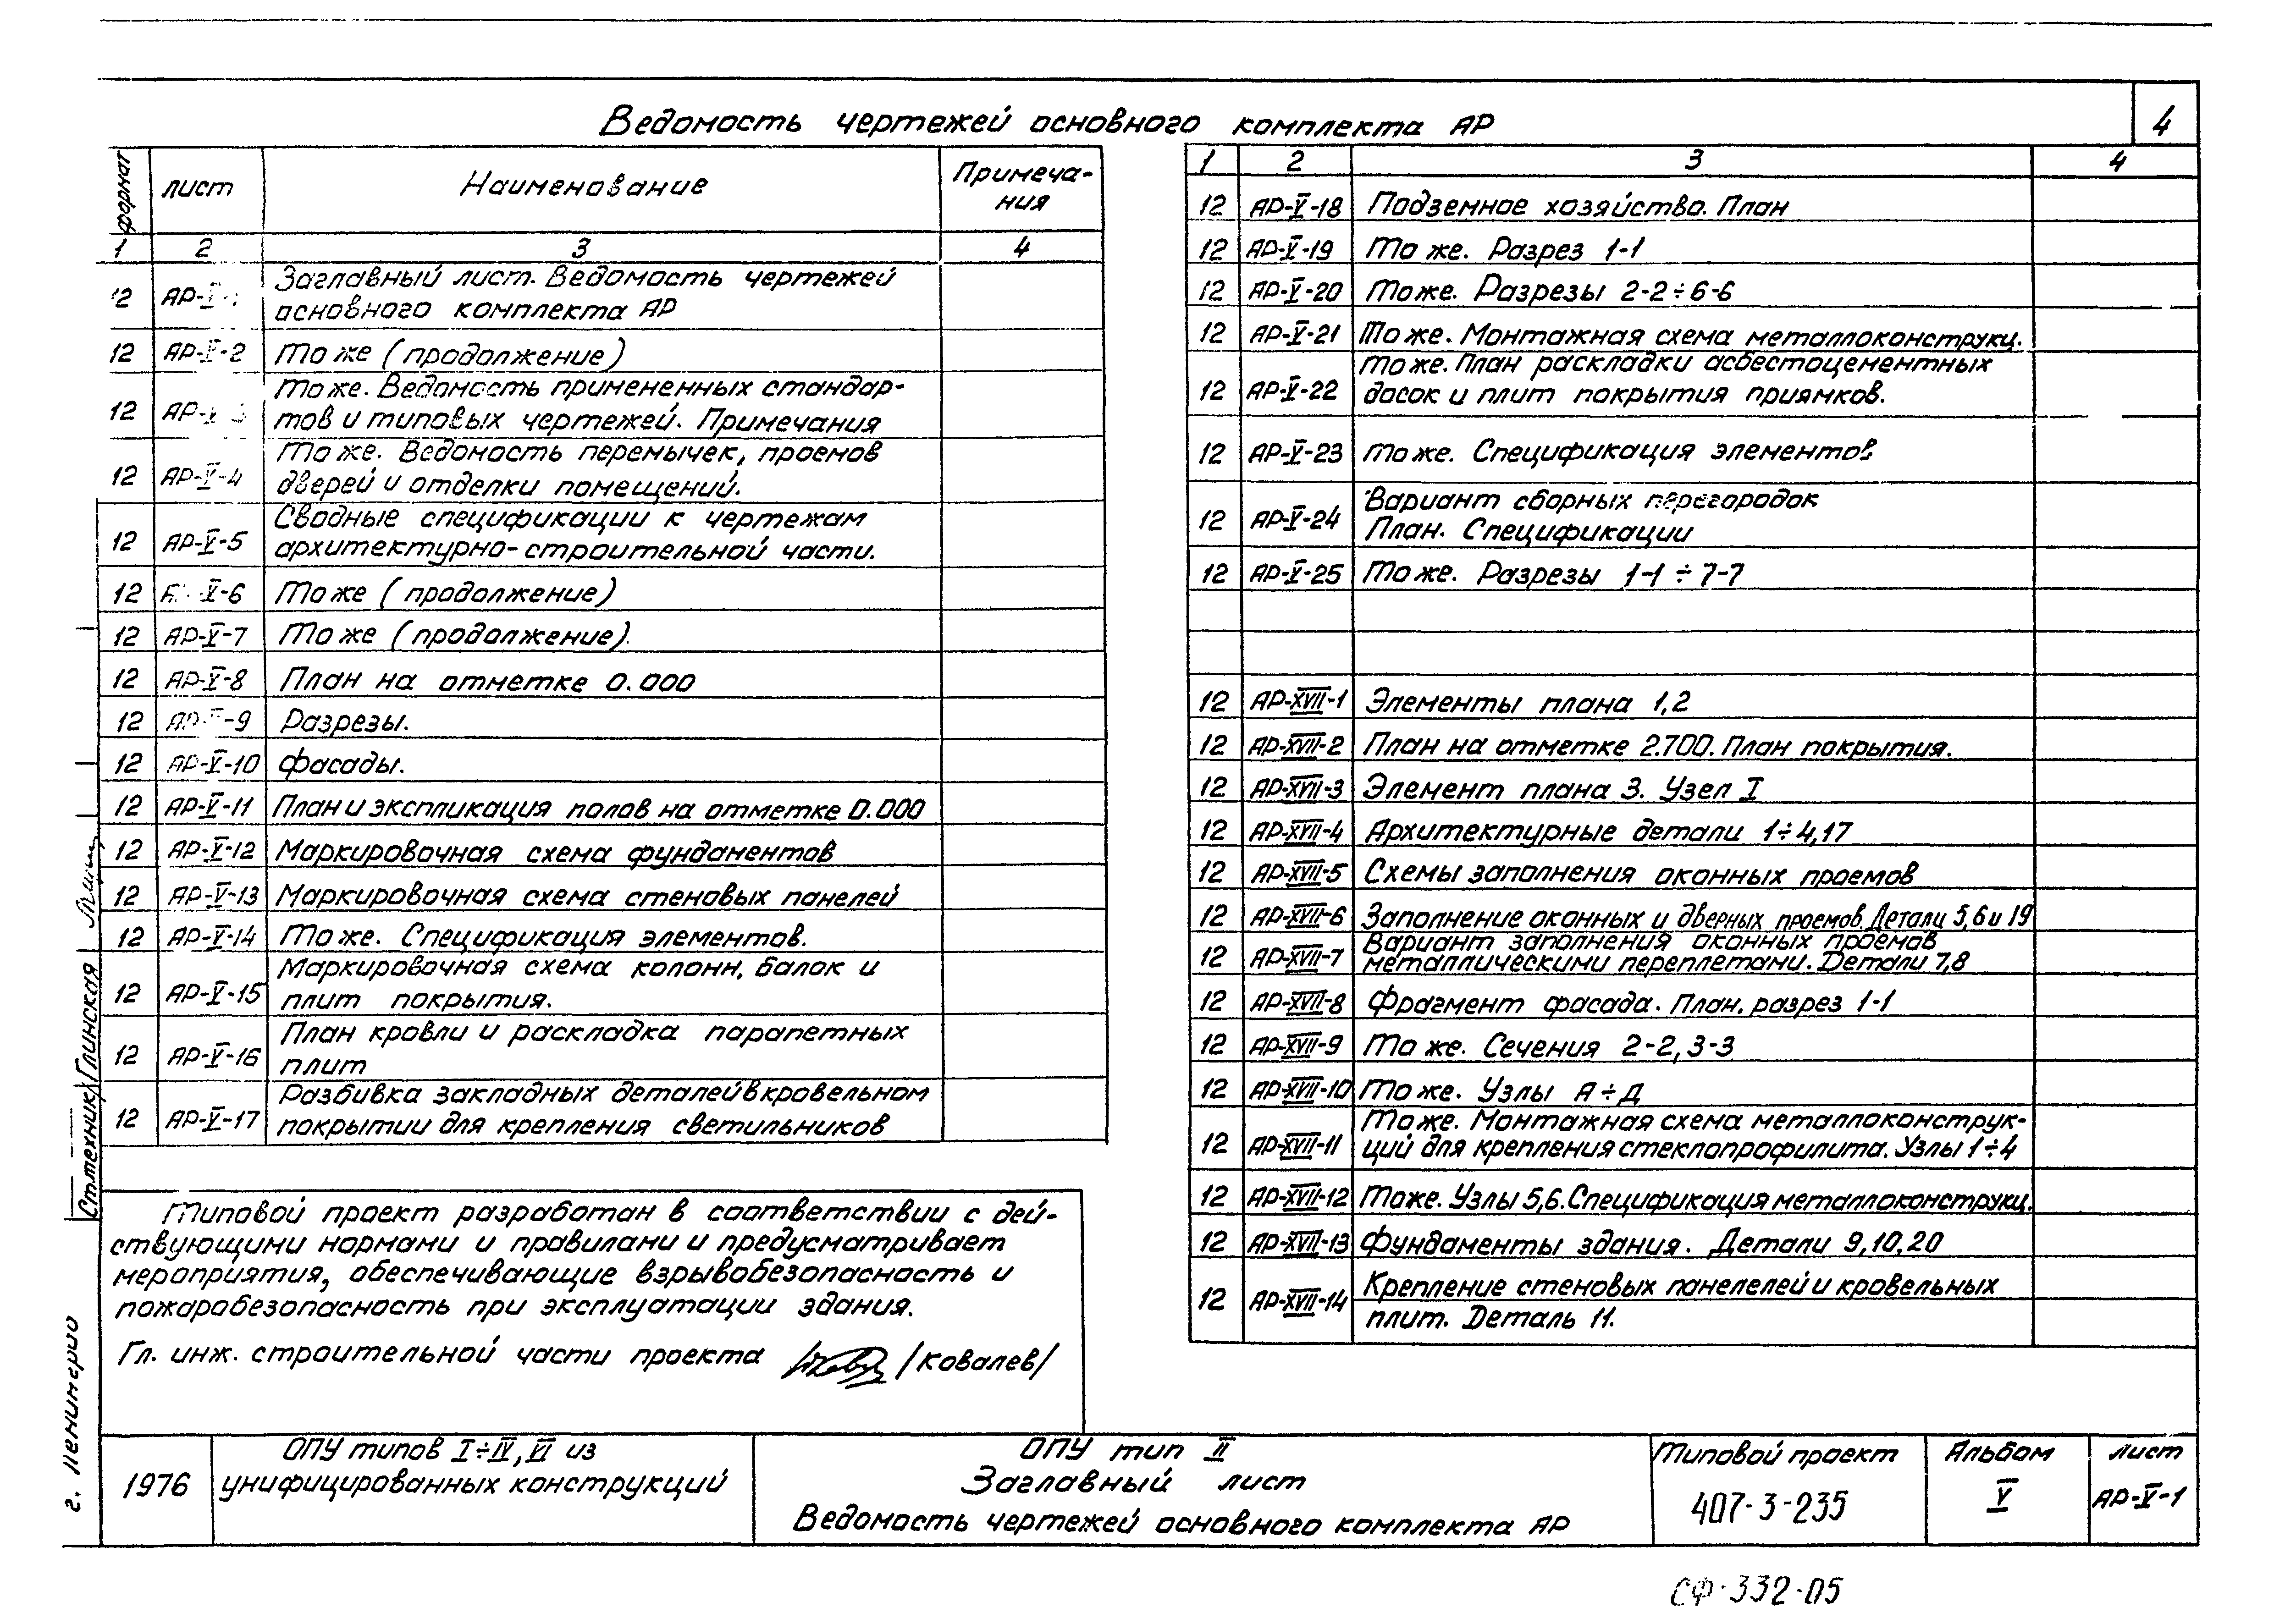 4
Ведомость чертежей основного комплекта АР
формат лист Наименование Примеча-
ния
1 2 3 4
12 АР-V-1 Заглавный лист. Ведомость чертежей
основного комплекта АР
12 АР-V-2 То же (продолжение)
12 АР-V-3 То же. Ведомость примененных стандар-
тов и типовых чертежей. Примечания
12 АР-V-4 То же. Ведомость перемычек, проемов
дверей и отделки помещений.
12 АР-V-5 Сводные спецификации к чертежам
архитектурно-строительной части.
12 АР-V-6 То же (продолжение)
12 АР-V-7 То же (продолжение).
12 АР-V-8 План на отметке 0.000
12 АР-V-9 Разрезы.
12 АР-V-10 Фасады.
12 АР-V-11 План и экспликация полов на отметке 0.000
12 АР-V-12 Маркировочная схема фундаментов
12 АР-V-13 Маркировочная схема стеновых панелей
12 АР-V-14 То же. Спецификация элементов.
12 АР-V-15 Маркировочная схема колонн, балок и
плит покрытия.
12 АР-V-16 План кровли и раскладка парапетных
плит
12 АР-V-17 Разбивка закладных деталей в кровельном
покрытии для крепления светильников
1 2 3 4
12 АР-V-18 Подземное хозяйство. План
12 АР-V-19 То же. Разрез 1-1
12 АР-V-20 То же. Разрезы 2-2÷6-6
12 АР-V-21 То же. Монтажная схема металлоконструкц.
12 АР-V-22 То же. План раскладки асбестоцементных
досок и плит покрытия приямков.
12 АР-V-23 То же. Спецификация элементов
12 АР-V-24 Вариант сборных перегородок
План. Спецификации
12 АР-V-25 То же. Разрезы 1-1 ÷ 7-7
12 АР-XVII-1 Элементы плана 1,2
12 АР-XVII-2 План на отметке 2.700. План покрытия.
12 АР-XVII-3 Элемент плана 3. Узел I
12 АР-XVII-4 Архитектурные детали 1÷4,17
12 АР-XVII-5 Схемы заполнения оконных проемов
12 АР-XVII-6 Заполнение оконных и дверных проемов. Детали 5,6 и 19
12 АР-XVII-7 Вариант заполнения оконных проемов
металлическими переплетами. Детали 7,8
12 АР-XVII-8 Фрагмент фасада. План, разрез 1-1
12 АР-XVII-9 То же. Сечения 2-2, 3-3
12 АР-XVII-10 То же. Узлы А÷Д
12 АР-XVII-11 То же. Монтажная схема металлоконструк-
ций для крепления стеклопрофилита. Узлы 1÷4
12 АР-XVII-12 То же. Узлы 5,6. Спецификация металлоконструкц.
12 АР-XVII-13 Фундаменты здания. Детали 9,10,20
12 АР-XVII-14 Крепление стеновых панелелей и кровельных
плит. Деталь 11.
Типовой проект разработан в соответствии с дей-
ствующими нормами и правилами и предусматривает
мероприятия, обеспечивающие взрывобезопасность и
пожаробезопасность при эксплуатации здания.
Гл. инж. строительной части проекта /Ковалев/
Ст.техник Глинская
1976
ОПУ типов I÷IV, VI из
унифицированных конструкций
ОПУ тип II
Заглавный лист
Ведомость чертежей основного комплекта АР
Типовой проект
407-3-235
Альбом
V
лист
АР-V-1
СФ-332-05